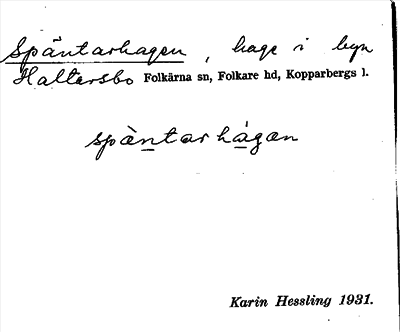 Späntarhagen, hage i byn
Haltersbo Folkärna sn, Folkare hd, Kopparbergs l.
spàntarhágan
Karin Hessling 1931.